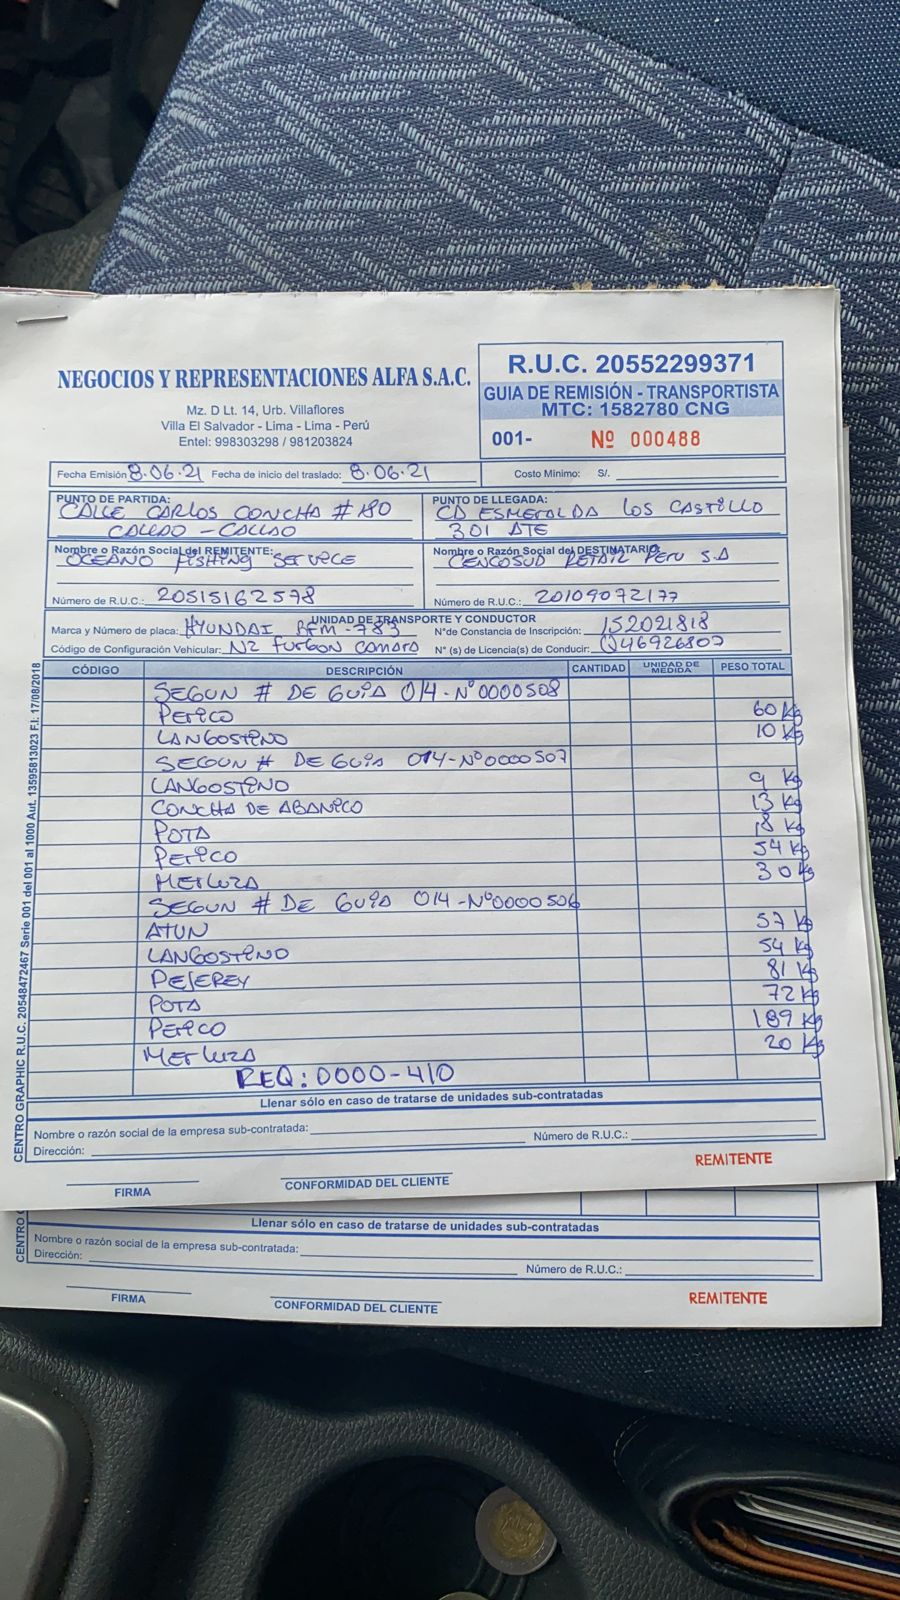 NEGOCIOS Y REPRESENTACIONES ALFA S.A.C.
Mz. D Lt. 14, Urb. Villaflores
Villa El Salvador - Lima - Lima - Perú
Entel: 998303298 / 981203824
R.U.C. 20552299371
GUIA DE REMISIÓN - TRANSPORTISTA
MTC: 1582780 CNG
001- Nº 000488
Fecha Emisión 8.06.21 Fecha de inicio del traslado: 8.06.21 Costo Minimo: S/.
PUNTO DE PARTIDA:
CALLE CARLOS CONCHA # 180
CALLAO - CALLAO
PUNTO DE LLEGADA:
CD ESMERALDA LOS CASTILLO
301 ATE
Nombre o Razón Social del REMITENTE:
OCEANO FISHING SERVICE
Número de R.U.C.: 20515162578
Nombre o Razón Social del DESTINATARIO:
CENCOSUD RETAIL PERU S.A
Número de R.U.C.: 20109072177
UNIDAD DE TRANSPORTE Y CONDUCTOR
Marca y Número de placa: HYUNDAI BFM-783 N°de Constancia de Inscripción: 152021818
Código de Configuración Vehicular: N2 FURGON CAMARA N° (s) de Licencia(s) de Conducir: Q46926807
CÓDIGO DESCRIPCIÓN CANTIDAD UNIDAD DE MEDIDA PESO TOTAL
SEGUN # DE GUIA 014-Nº0000508
PERICO 60 Kg
LANGOSTINO 10 Kg
SEGUN # DE GUIA 014-Nº0000507
LANGOSTINO 9 Kg
CONCHA DE ABANICO 13 Kg
POTA 18 Kg
PERICO 54 Kg
MERLUZA 30 Kg
SEGUN # DE GUIA 014-Nº0000506
ATUN 57 Kg
LANGOSTINO 54 Kg
PEJEREY 81 Kg
POTA 72 Kg
PERICO 189 Kg
MERLUZA 20 Kg
REQ: 0000-410
Llenar sólo en caso de tratarse de unidades sub-contratadas
Nombre o razón social de la empresa sub-contratada:
Dirección: Número de R.U.C.:
REMITENTE
FIRMA CONFORMIDAD DEL CLIENTE
CENTRO GRAPHIC R.U.C. 20548472467 Serie 001 del 001 al 1000 Aut. 13595813023 F.I. 17/08/2018
Llenar sólo en caso de tratarse de unidades sub-contratadas
Nombre o razón social de la empresa sub-contratada:
Dirección: Número de R.U.C.:
REMITENTE
FIRMA CONFORMIDAD DEL CLIENTE
CENTRO